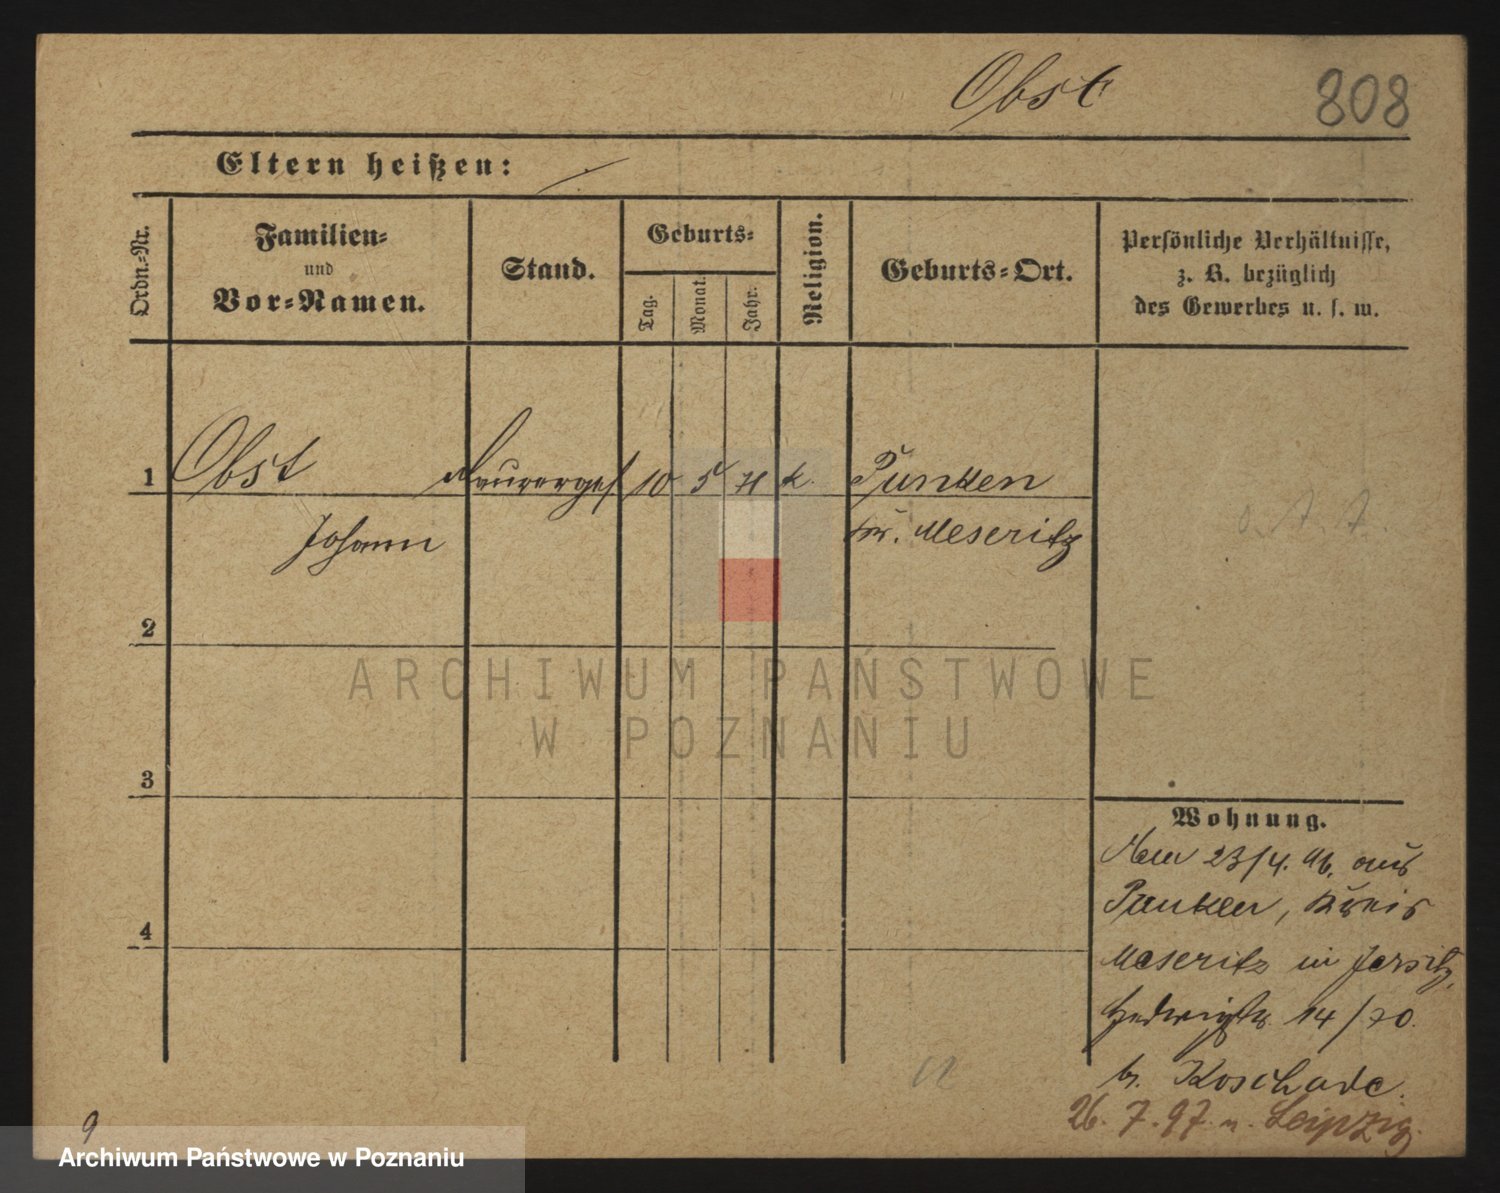 Obst 808
Eltern heißen:
Ordn.-Nr.
Familien-
und
Vor-Namen.
Stand.
Geburts-
Tag.
Monat.
Jahr.
Religion.
Geburts-Ort.
Persönliche Verhältnisse,
z. B. bezüglich
des Gewerbes u. s. w.
1 Obst Maurerges 10 5 71 k. Punken
Johann Kr. Meseritz
2
3
4
Wohnung.
23/4. 96. aus
Punken, Kreis
Meseritz in Jersitz,
Hedwigstr. 14/20.
b. Koschade.
26. 7. 97. n. Leipzig.
12
9
ARCHIWUM PAŃSTWOWE
W POZNANIU
Archiwum Państwowe w Poznaniu